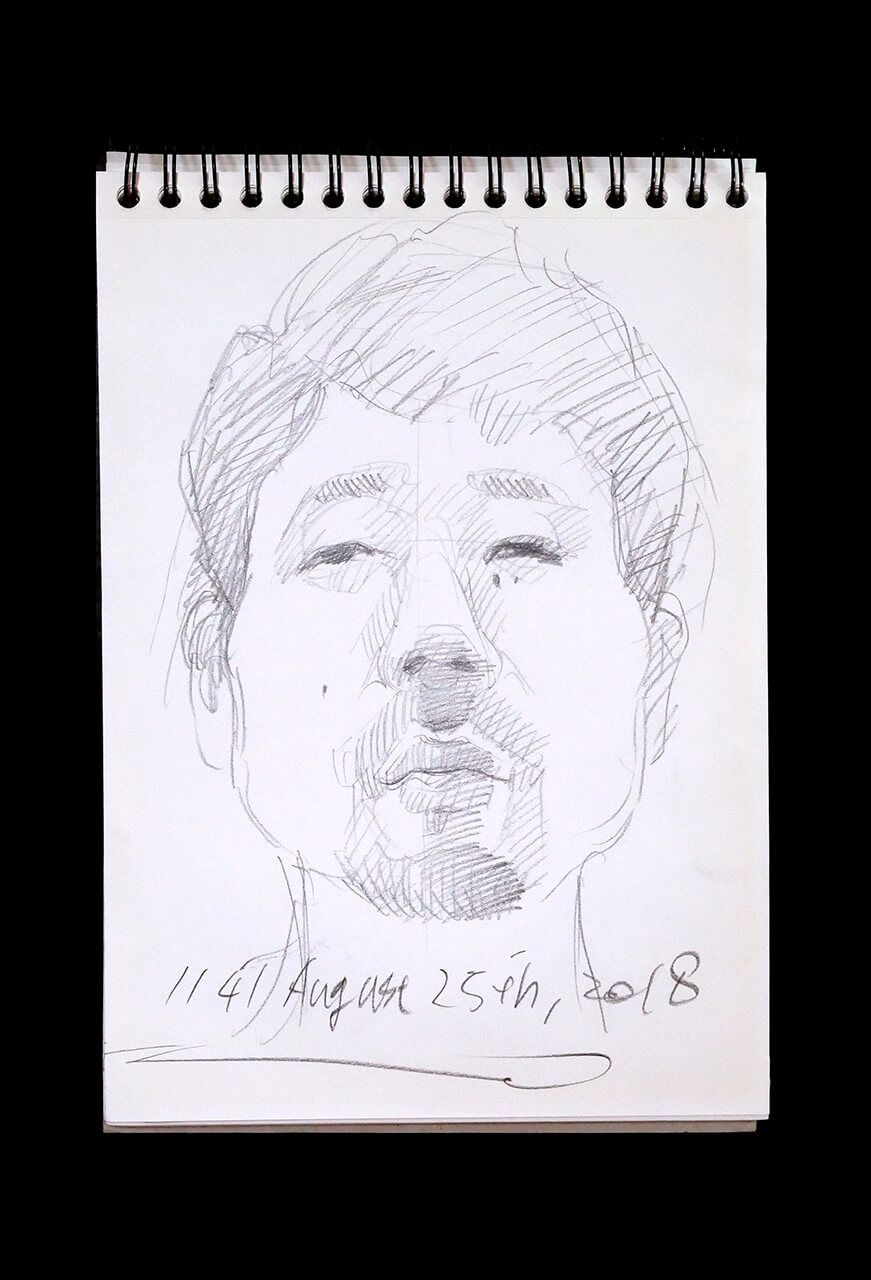 1141 August 25th, 2018